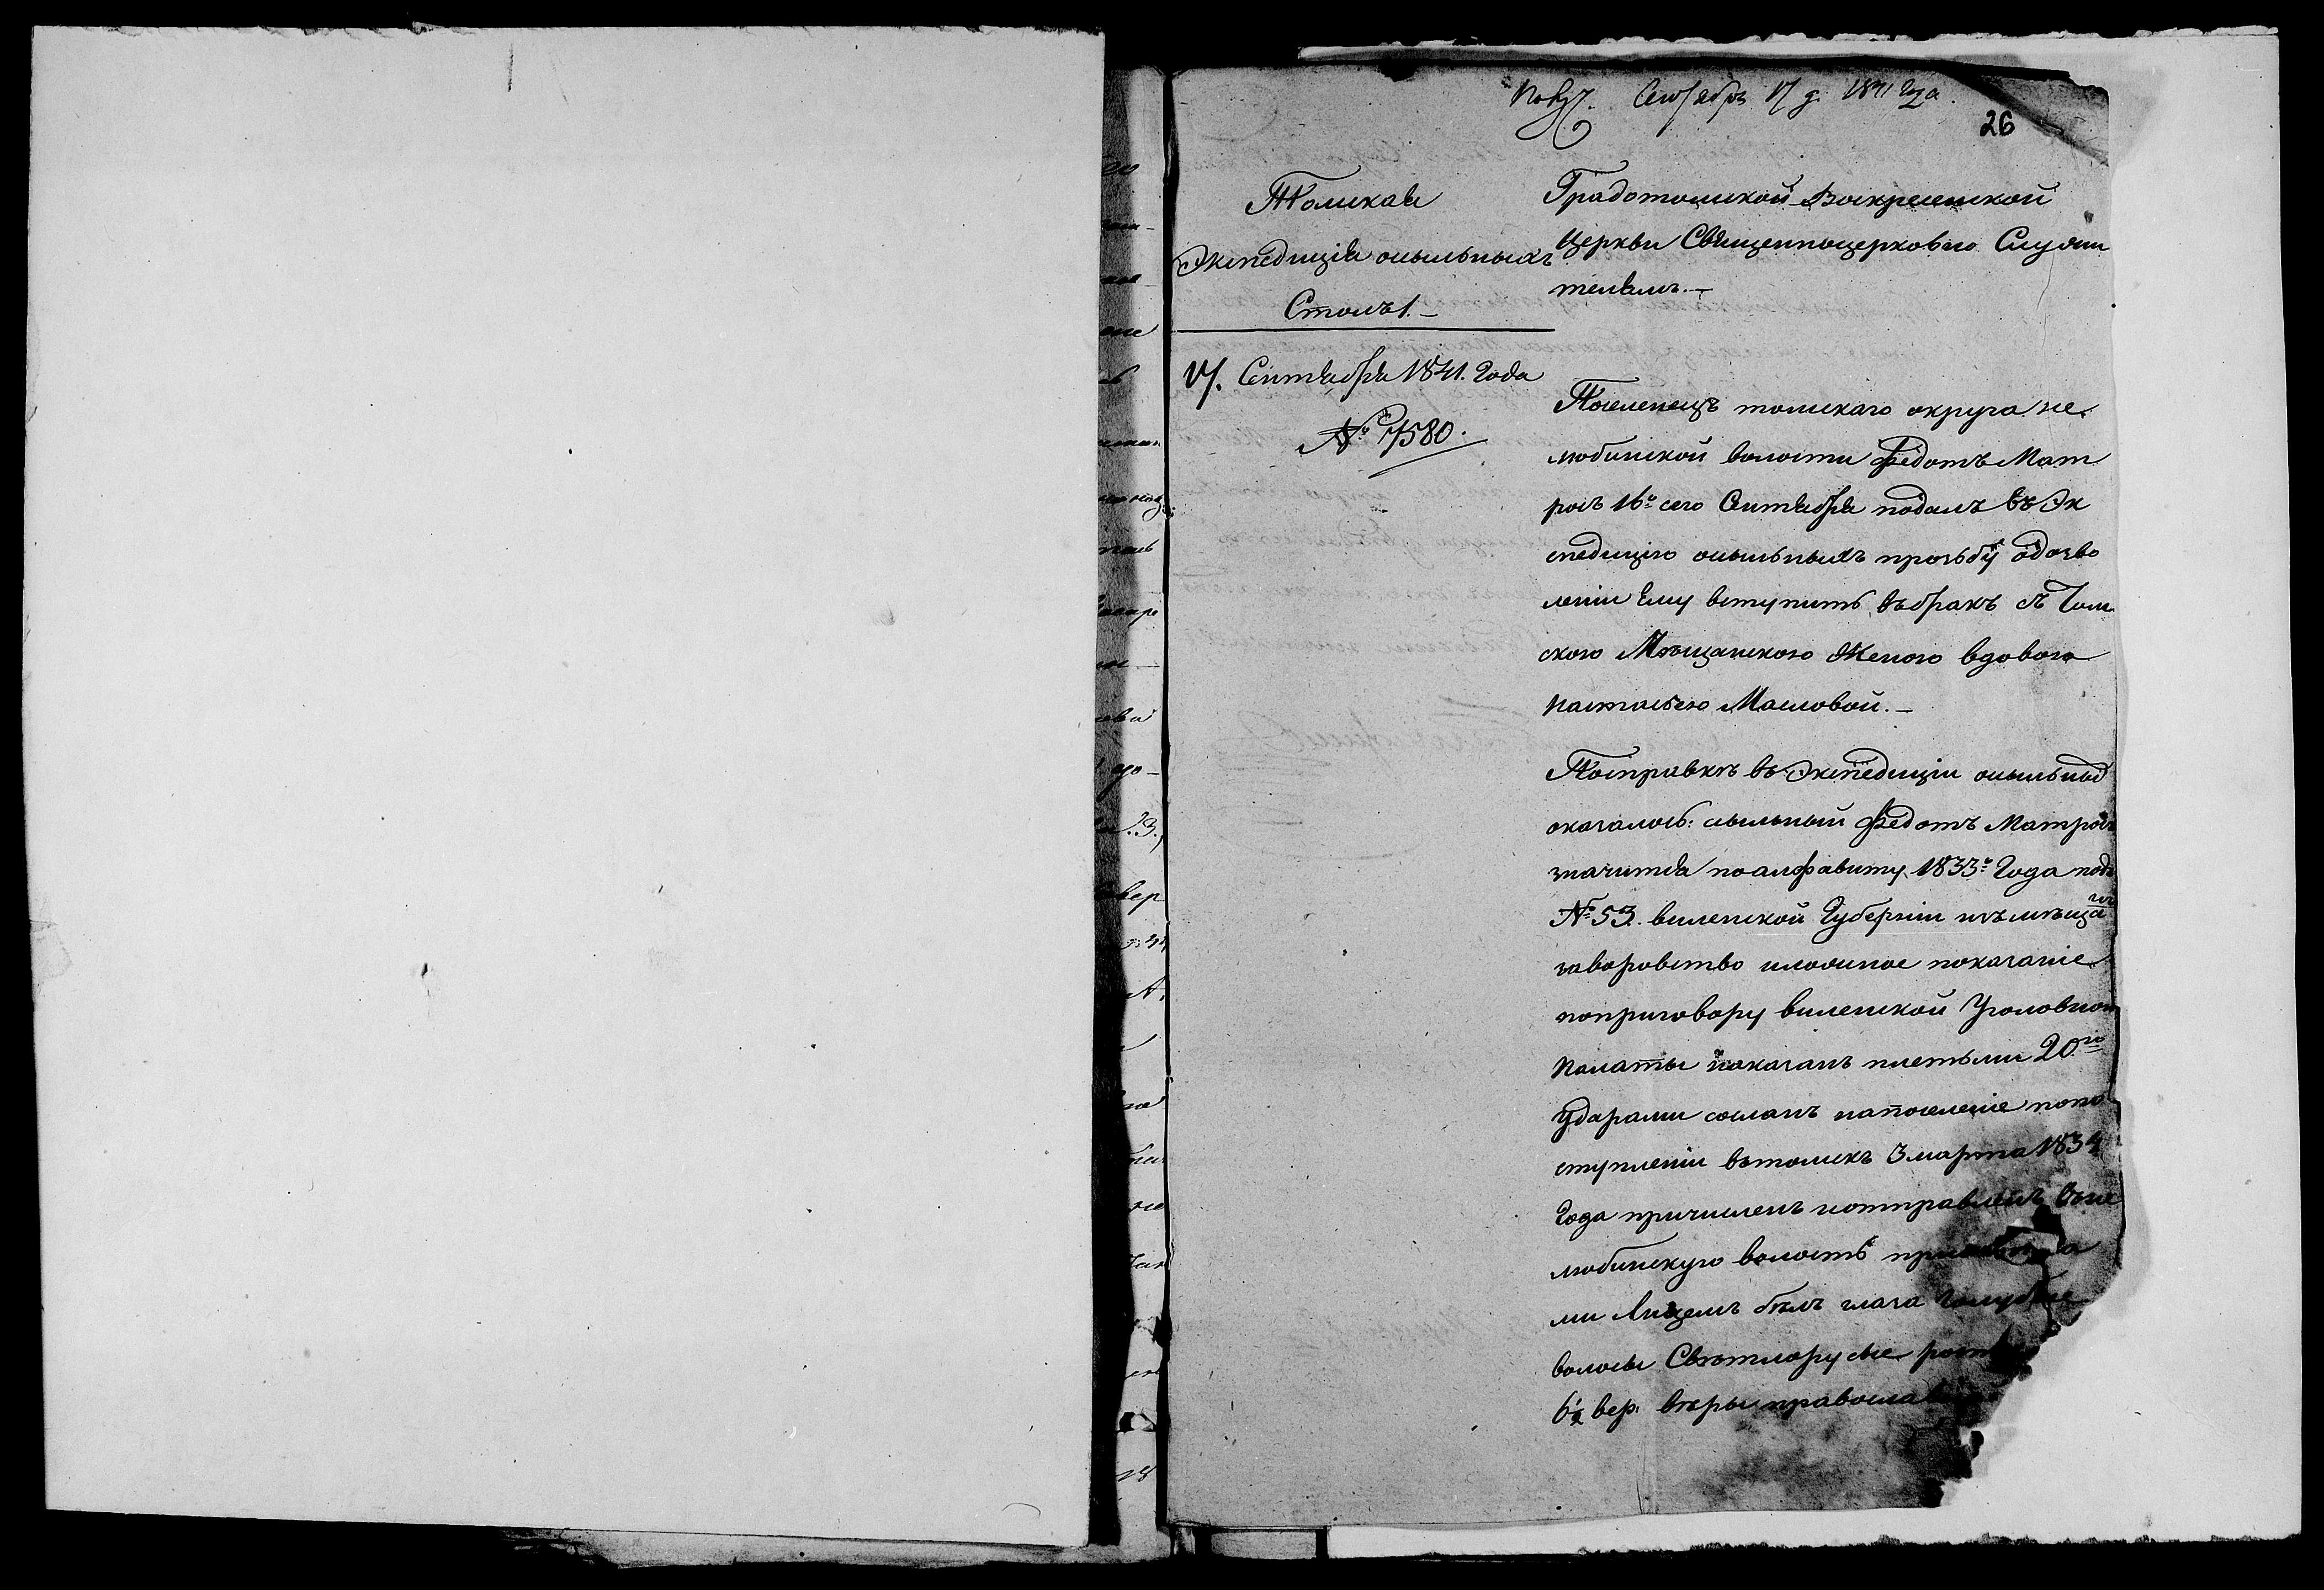 Получ. Сентября 17 д. 1841 года.
26
Томская
Экспедиція ссыльныхъ
Столъ 1.
17. Сентября 1841. Года
№ 7580.
Градотомской Воскресенской
Церкви Священноцерковно Служи
телямъ.
Поселенецъ томскаго округа не
любинской волости Федотъ Мат
росъ 16го сего Сентября подалъ въ Эк
спедицію ссыльныхъ прозьбу одозво
леніи Ему вступить въбракъ съ Том
скою Мѣщанскою Женою вдовою
Настасьею Масловой.
Посправкѣ въ Экспедиціи ссыльных
оказалось: ссыльный Федотъ Матросъ
значится поалфавиту 1833го Года подъ
№ 53. виленской Губерніи изъмѣщанъ
заворовство иложное показаніе
поприговору виленской Уголовной
Палаты наказанъ плетьми 20ю
ударами сосланъ напоселеніе попо
ступленіи втомскъ 3 марта 1834
Года причисленъ иотправленъ въне
любинскую волость
ми Лицемъ бѣлъ глаза голубые
волосы Светлорусые рост
6½ вер. вѣры православ